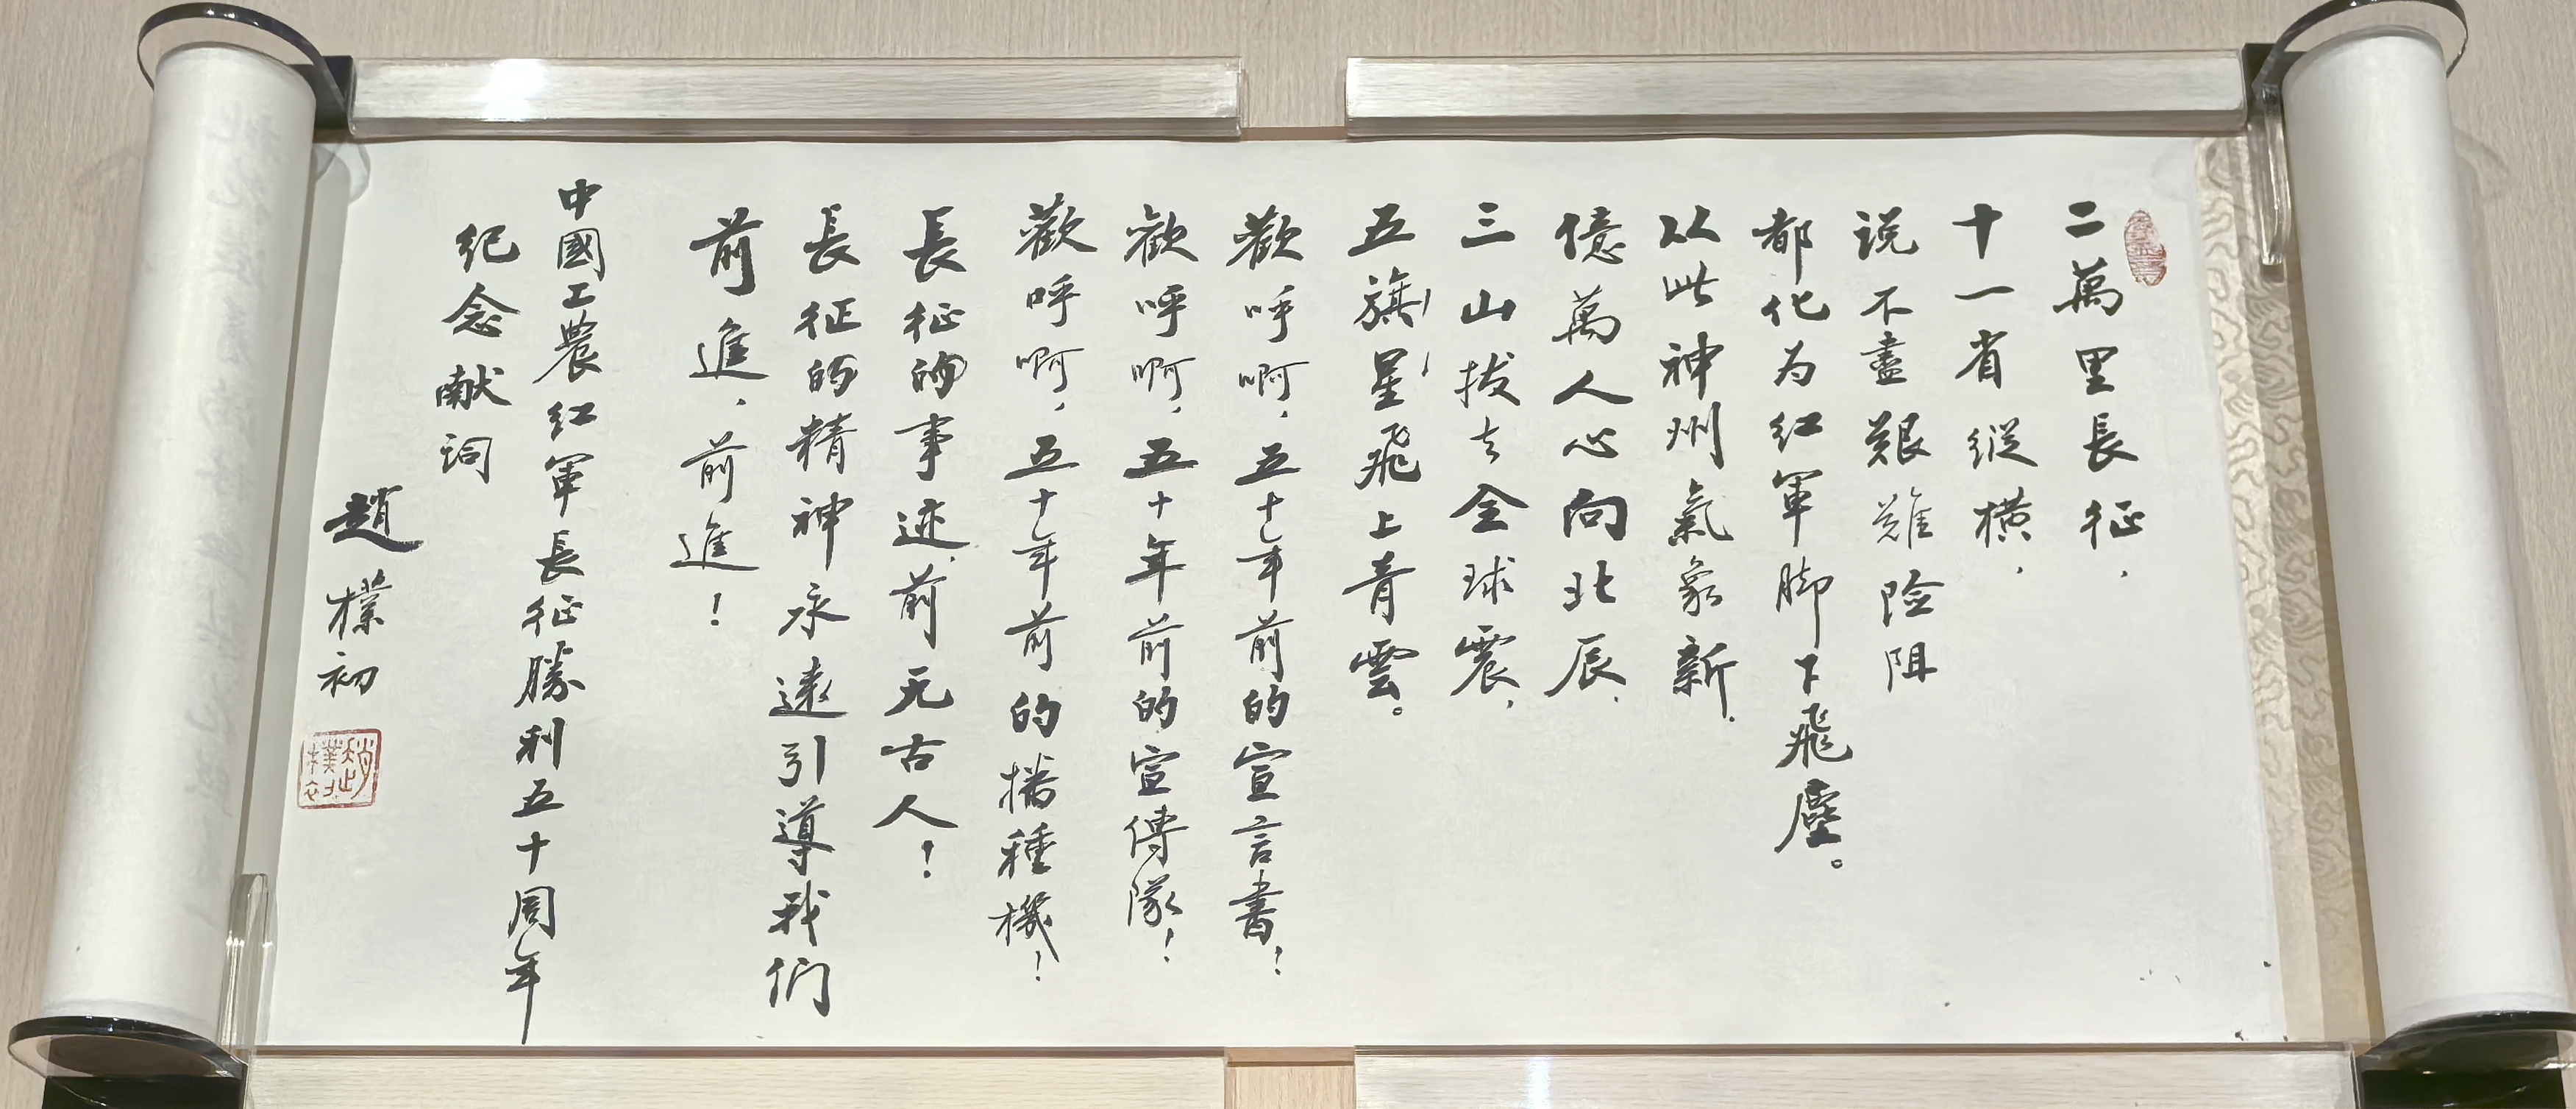 二萬里長征，
十一省縱横，
说不盡艱難险阻
都化为红軍脚下飛塵。
从此神州氣象新，
億萬人心向北辰，
三山拔去全球震，
五旗星飛上青雲。
歡呼啊，五十年前的宣言書！
歡呼啊，五十年前的宣傳隊！
歡呼啊，五十年前的播種機！
長征的事迹，前无古人！
長征的精神永遠引導我们
前進，前進！
中國工農红軍長征勝利五十周年
纪念献词
趙樸初
趙樸初